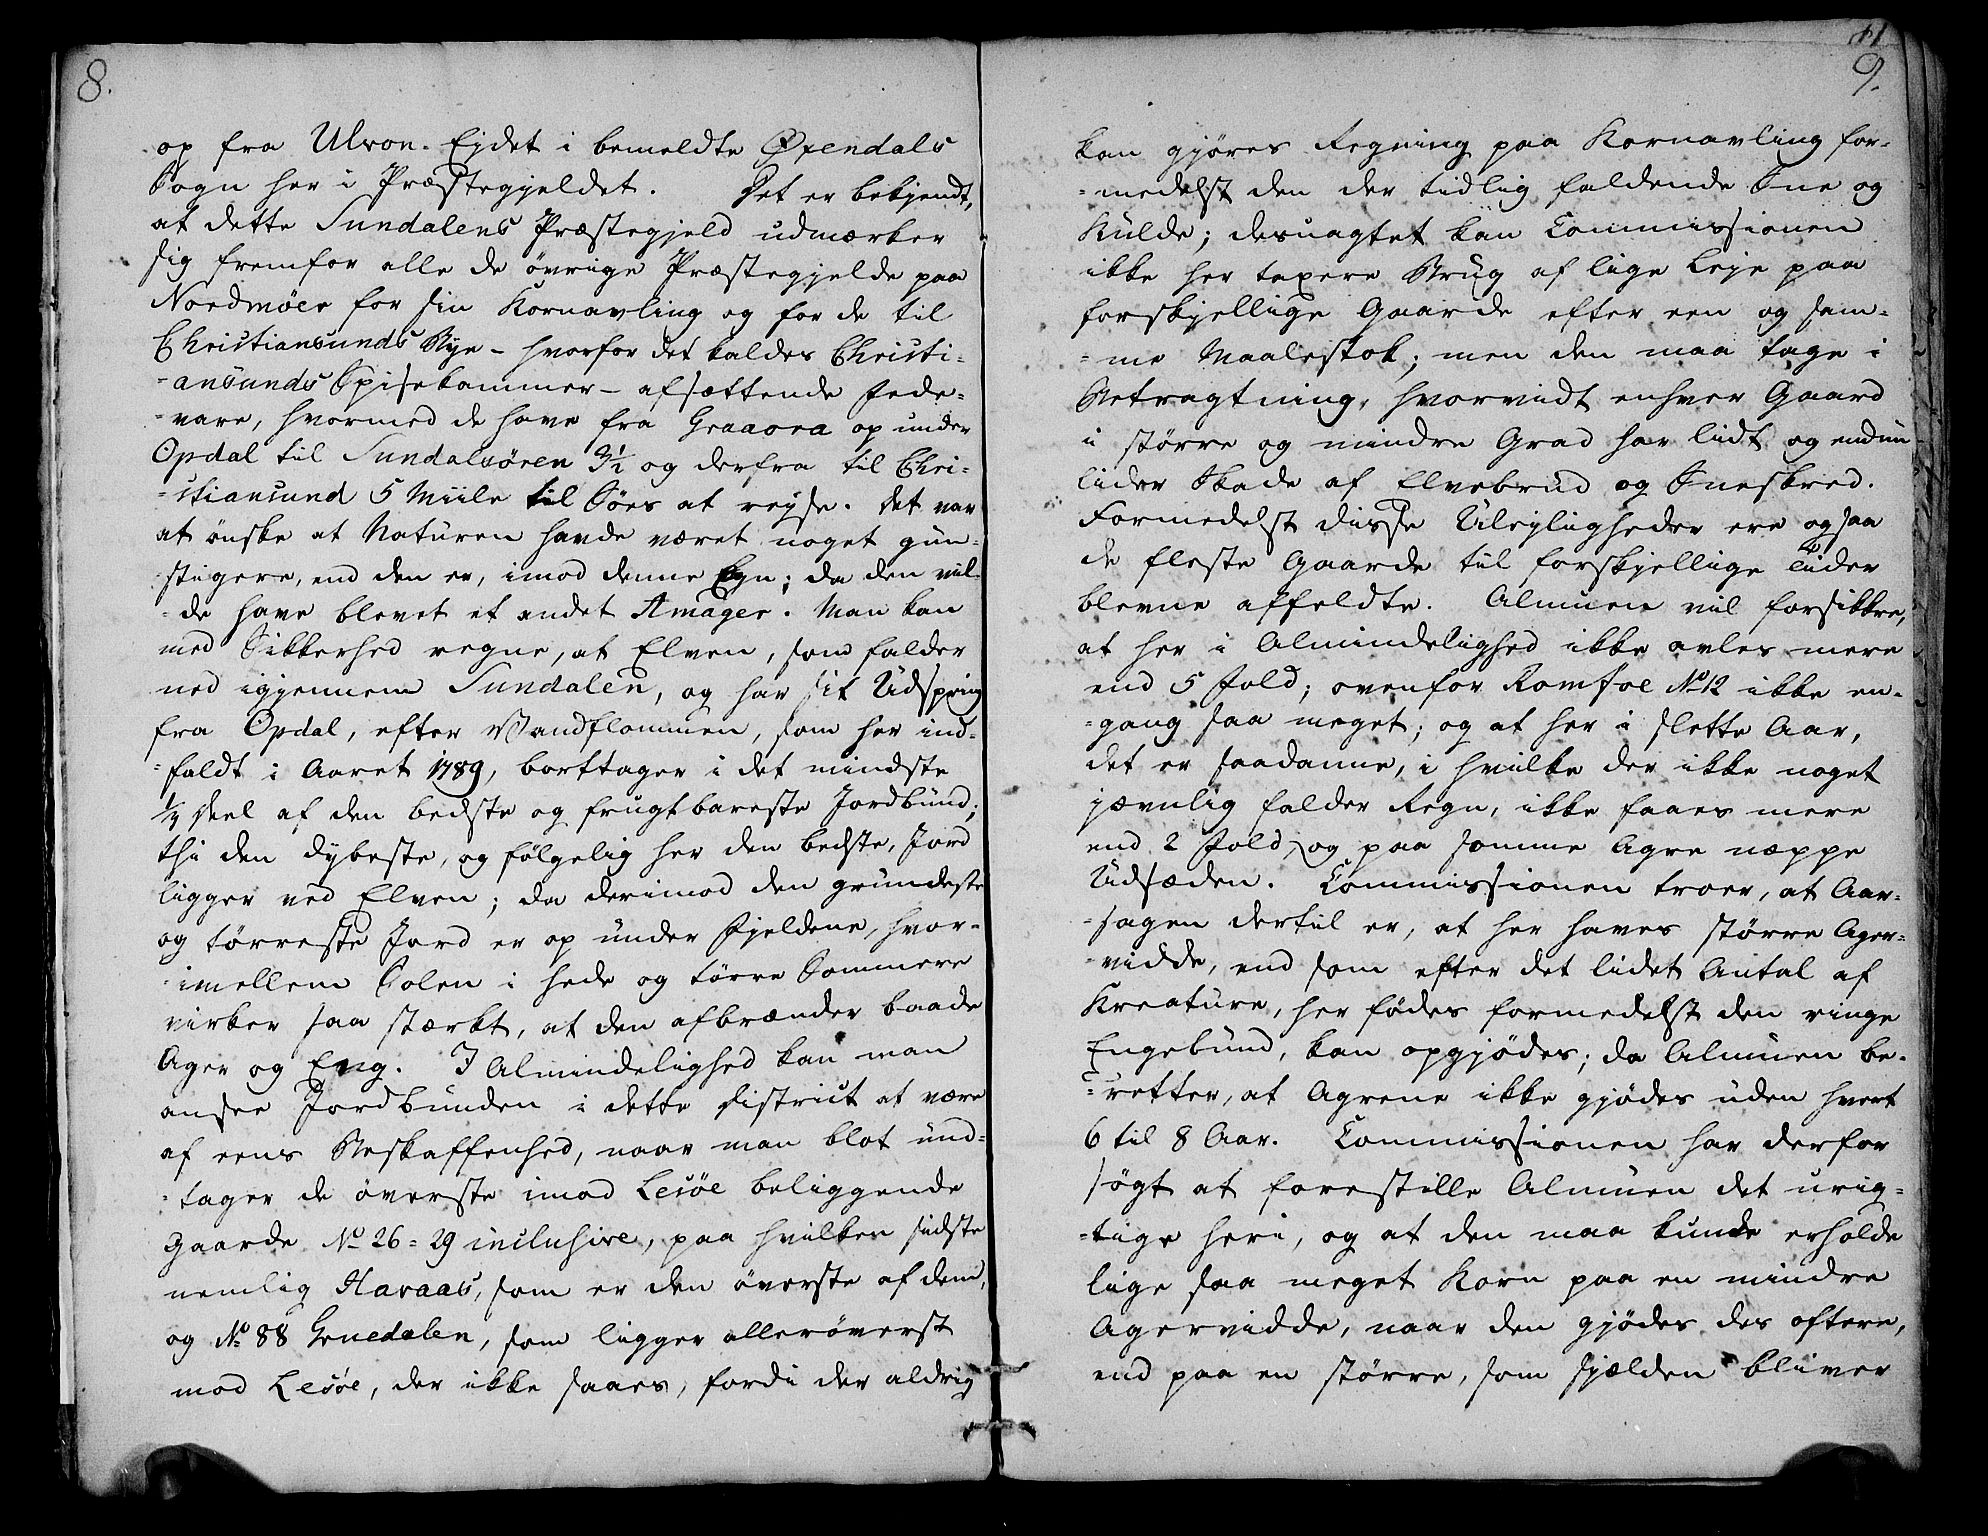 8.
op fra Ulvon. Ejdet i bemeldte Øxendals
Sogn her i Præstegjeldet. Det er bekjendt,
at dette Sundalens Præstegjeld udmærker
sig fremfor alle de övrige Præstegjelde paa
Nordmöer for sin Kornavling og for de til
Christiansunds Bye – hvorfor det kaldes Christi=
=ansunds Spisekammer – afsættende Fede=
=vare, hvormed de have fra Graaora op under
Opdal til Sundalsören 9½ og derfra til Chri=
=stiansund 5 Miile til Söes at rejse. Det var
at önske at Naturen havde været noget gun=
=stigere, end den er, imod denne Egn; da den vil=
=de have blevet et andet Amager. Man kan
med Sikkerhed regne, at Elven, som falder
ned igjennem Sundalen, og har sit Udspring
fra Opdal, efter Vandflommen, som her ind=
=faldt i Aaret 1789, borttager i det mindste
¼ Deel af den bedste og frugtbareste Jordbund;
thi den dybeste, og fölgelig her den bedste, Jord
ligger ved Elven; da derimod den grundeste
og törreste Jord er op under Fjeldene, hvor=
=imellem Solen i hede og törre Sommere
virker saa stærkt, at den afbrænder baade
Ager og Eng. I Almindelighed kan man
ansee Jordbunden i dette District at være
af eens Beskaffenhed, naar man blot und=
=tager de överste imod Lesöe beliggende
Gaarde No 26 = 29 inclusive, paa hvilken sidste
nemlig Havaas, som er den överste af dem,
og No 88 Gruedalen, som ligger alleröverst
mod Lesöe, der ikke saaes, fordi der aldrig
9.
kan gjöres Regning paa Kornavling for=
=medelst den der tidlig faldende Snee og
Kulde; desuagtet kan Commissionen
ikke her taxere Brug af lige Leje paa
forskjellige Gaarde efter een og sam=
=me Maalestok; men den maa tage i
Betragtning, hvorvidt enhver Gaard
i större og mindre Grad har lidt og endnu
lider Skade af Elvebrud og Sneskred.
Formedelst disse Ulejligheder ere ogsaa
de fleste Gaarde til forskjellige Tider
blevne affeldte. Almuen vil forsikkre,
at her i Almindelighed ikke avles mere
end 5 Fold; ovenfor Romfoe No 12 ikke en=
=gang saa meget; og at her i slette Aar,
det er saadanne, i hvilke der ikke noget
jævnlig falder Regn, ikke faaes mere
end 2 Fold, og paa somme Agre næppe
Udsæden. Commissionen troer, at Aar=
=sagen dertil er, at her haves större Ager=
=vidde, end som efter det lidet Antal af
Kreature, her födes formedelst den ringe
Engebund, kan opgjödes; da Almuen be=
=retter, at Agrene ikke gjödes uden hvert
6 til 8 Aar. Commissionen har derfor
sögt at forestille Almuen det urig=
=tige heri, og at den maa kunde erholde
lige saa meget Korn paa en mindre
Agervidde, naar den gjödes des oftere,
end paa en större, som sjælden bliver